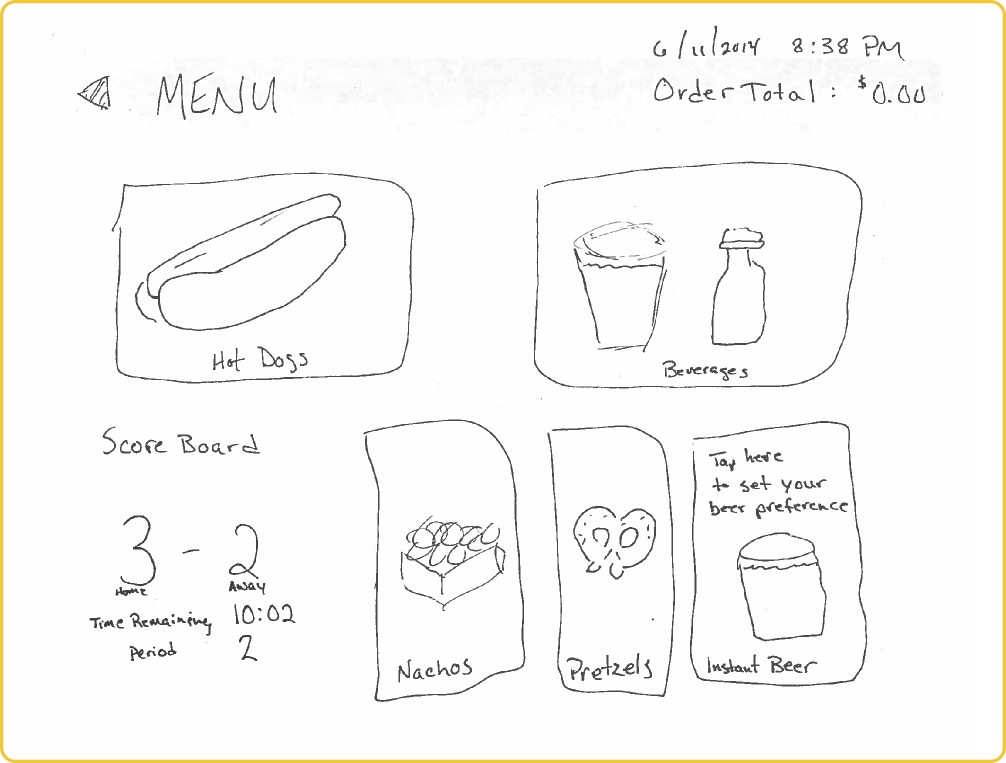 6/11/2014 8:38 PM
MENU
Order Total: $0.00
Hot Dogs
Beverages
Score Board
3 - 2
Home Away
Time Remaining 10:02
Period 2
Nachos
Pretzels
Tap here
to set your
beer preference
Instant Beer